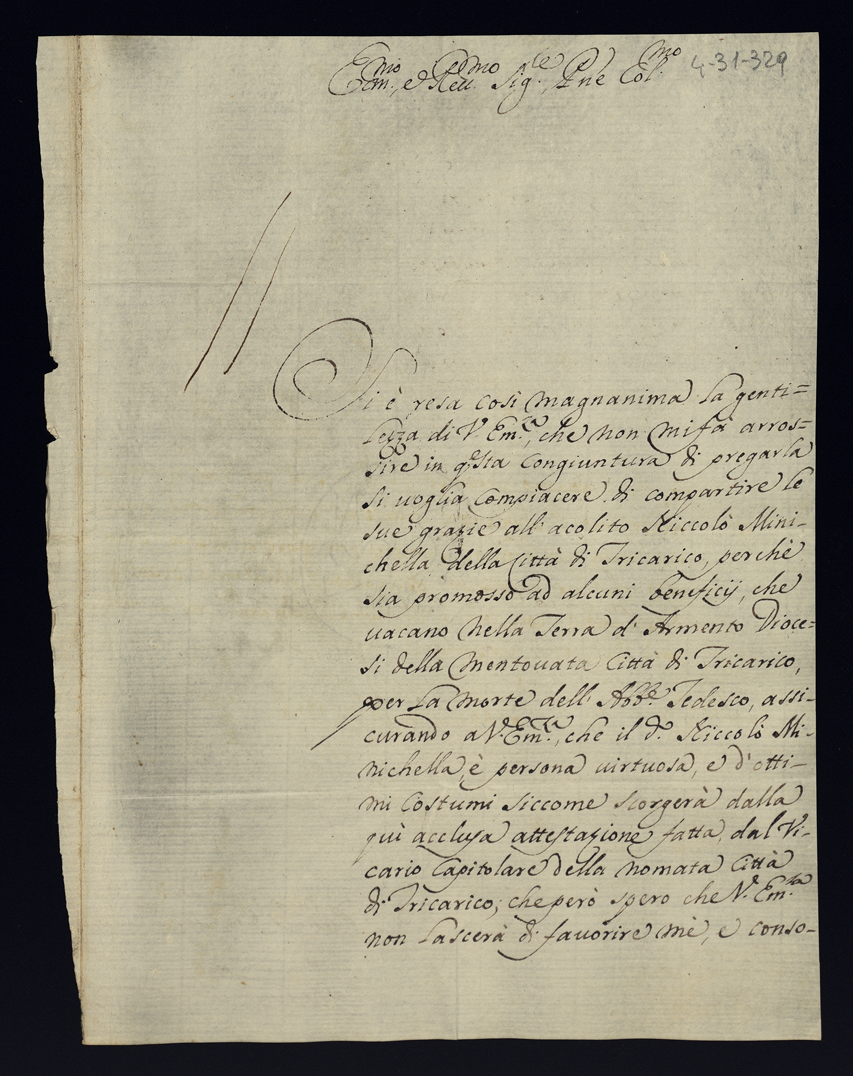 Em.mo, e Rev.mo Sig.re, Pne Col.mo 4-31-329
Si è resa così magnanima la genti=
lezza di V. Em.za, che non mi fà arros=
sire in q.sta Congiuntura di pregarla
si voglia Compiacere di compartire le
sue grazie all' acolito Niccolò Mini-
chella della Città di Tricarico, perchè
sia promosso ad alcuni beneficij, che
vacano nella Terra d' Armento Dioce-
si della mentovata Città di Tricarico,
per la morte dell' Abb.e Tedesco, assi-
curando a V. Em.za, che il d.o Niccolò Mi-
nichella, è persona virtuosa, e d'otti-
mi Costumi siccome scorgerà dalla
quì acclusa attestazione fatta dal Vi-
cario Capitolare della nomata Città
di Tricarico; che però spero che V. Em.za
non lascerà di favorire mè, e conso-